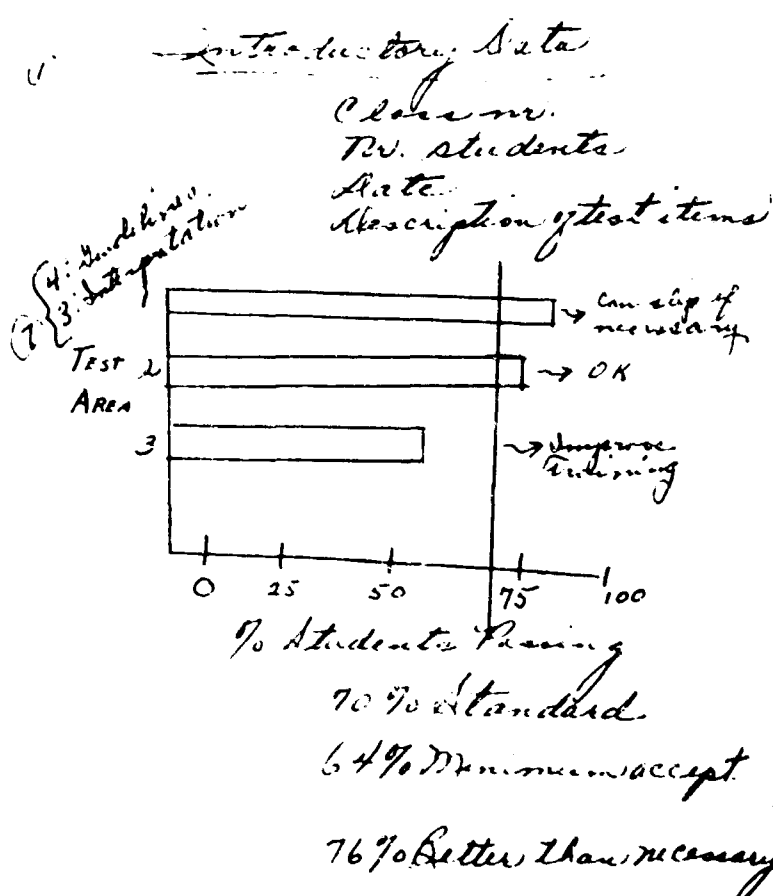 Introductory Data
Class nr.
Nr. students
Date
Description of test items
4: Guidelines
3: Interpretation
Can slip if
necessary
TEST 2 → OK
AREA
3 → Improve
Training
0 25 50 75 100
% Students Passing
70% Standard
64% Minimum accept
76% Better than necessary